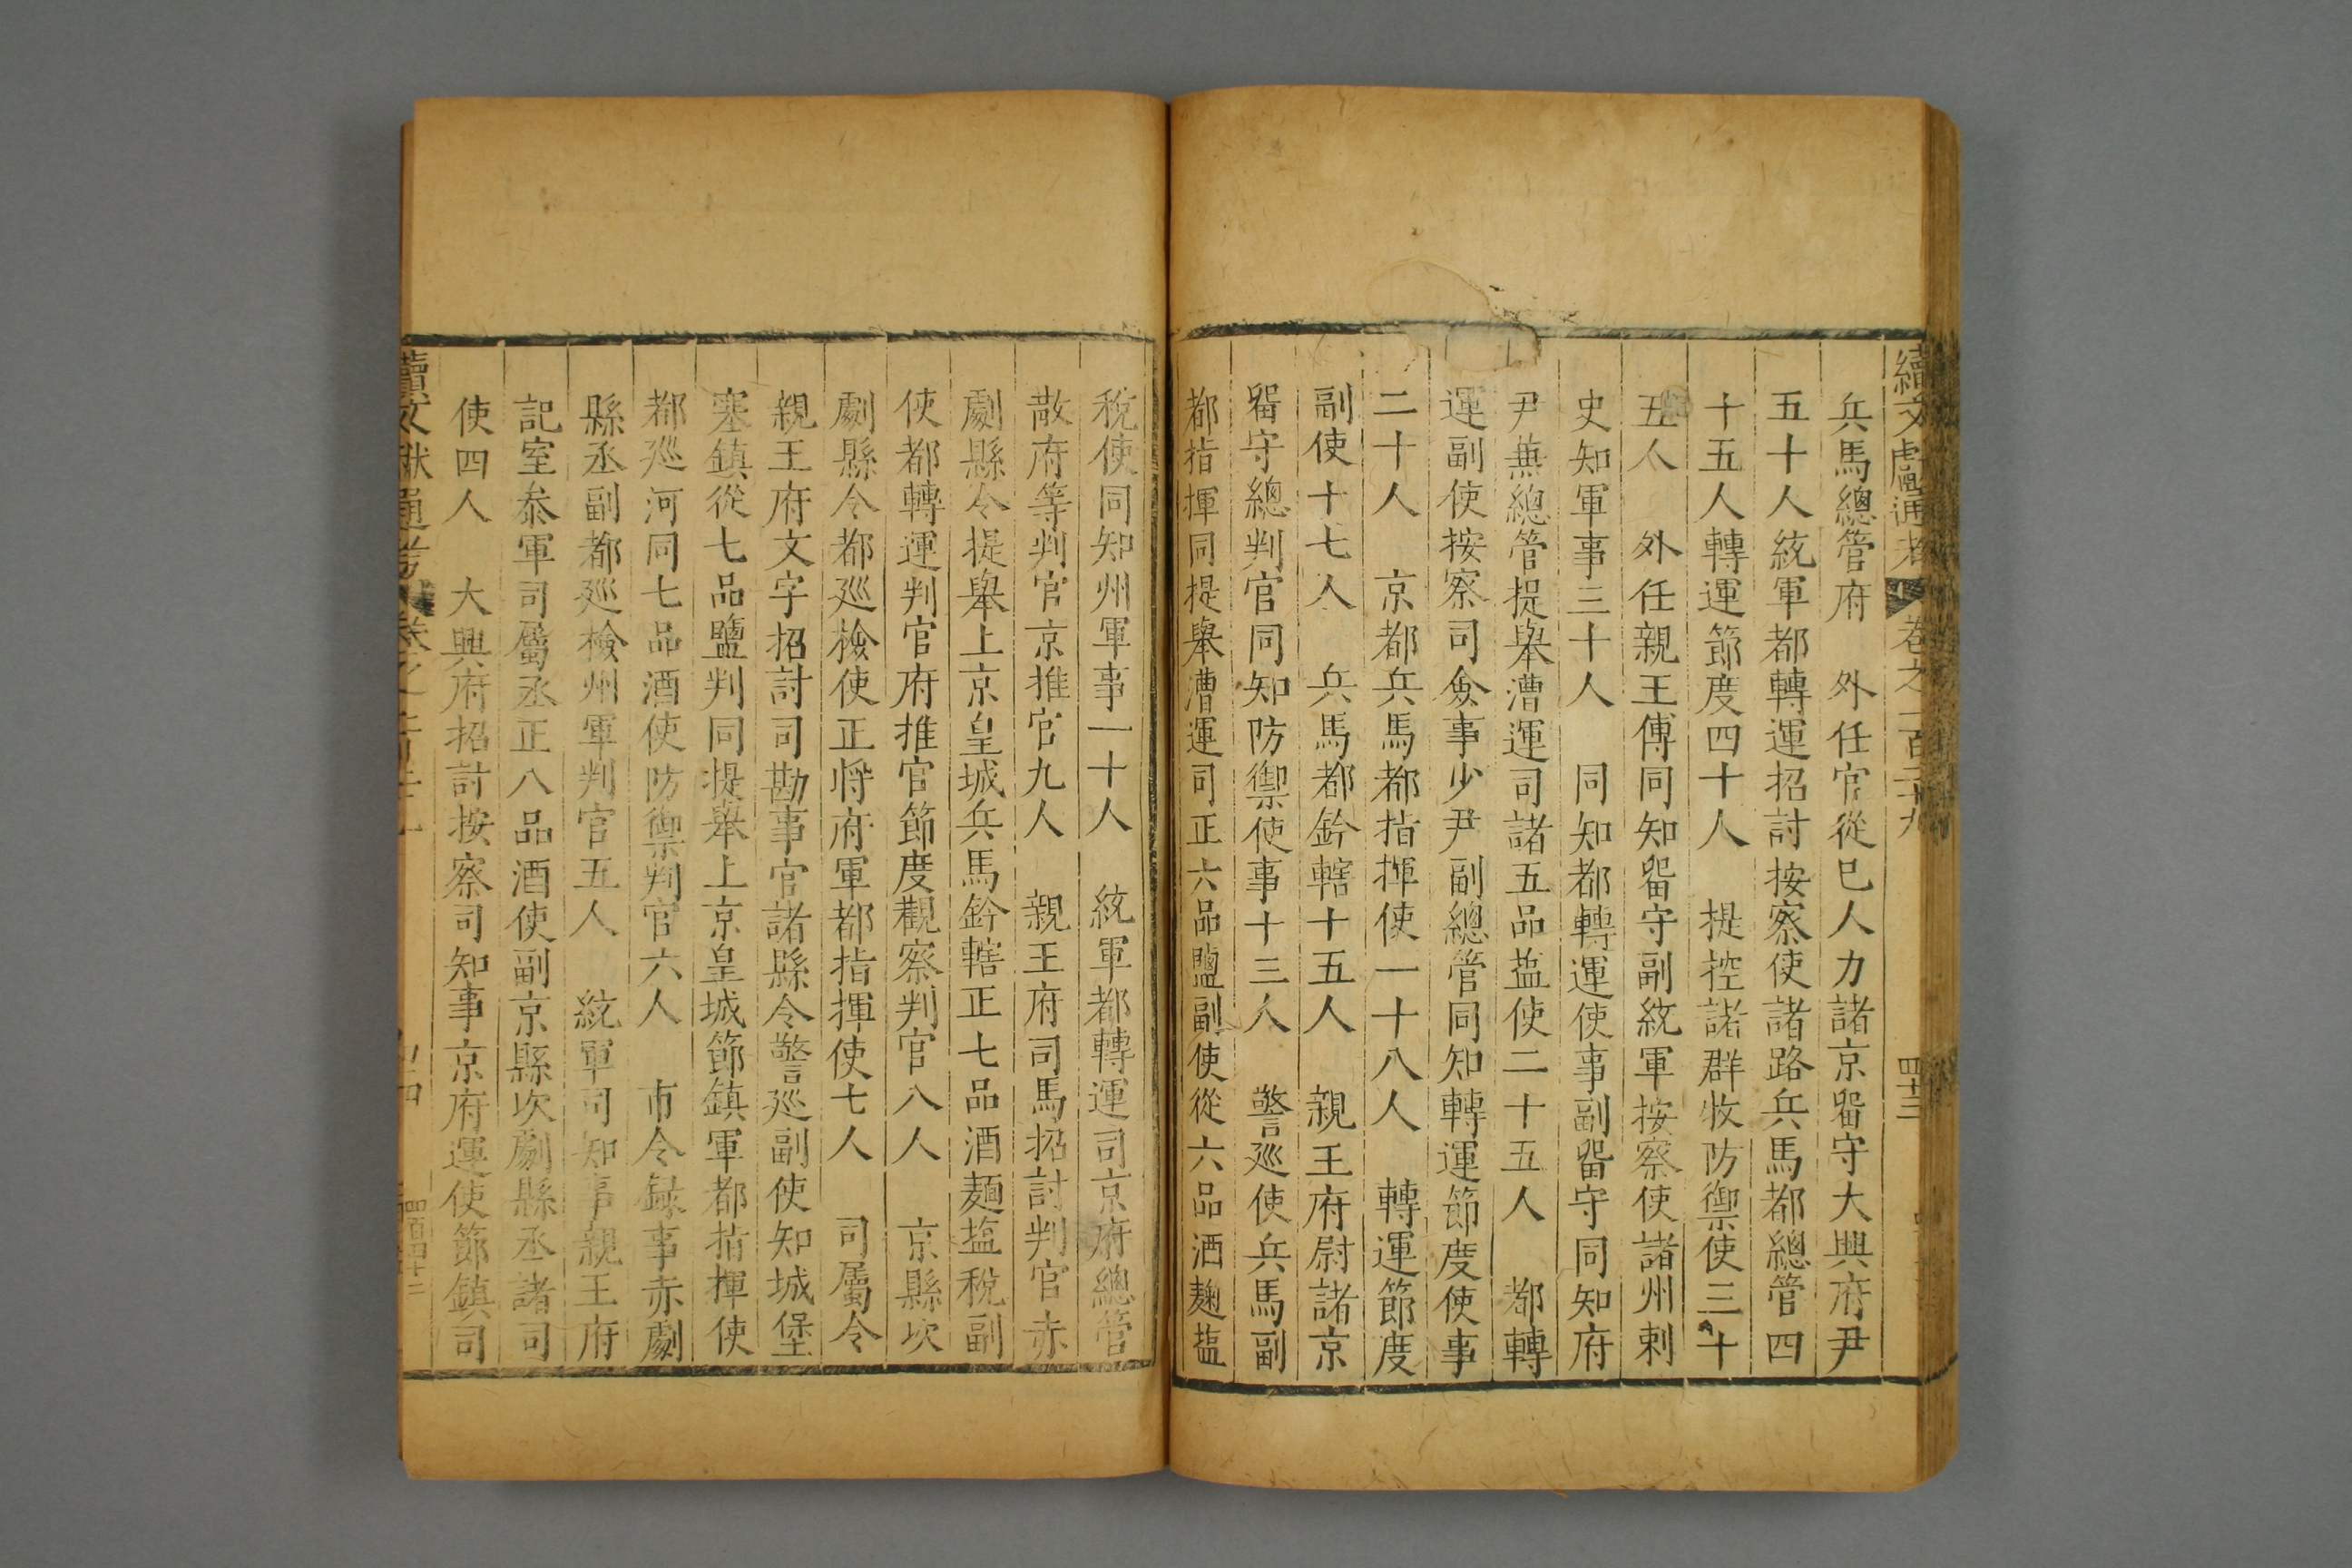 續文獻通考 卷之一百二十九 四十三
兵馬總管府 外任官從巳人力諸京留守大興府尹
五十人統軍都轉運招討按察使諸路兵馬都總管四
十五人轉運節度四十人 提控諸群牧防禦使三十
五人 外任親王傅同知留守副統軍按察使諸州剌
史知軍事三十人 同知都轉運使事副留守同知府
尹兼總管提舉漕運司諸五品盐使二十五人 都轉
運副使按察司僉事少尹副總管同知轉運節度使事
二十人 京都兵馬都指揮使一十八人 轉運節度
副使十七人 兵馬都鈐轄十五人 親王府尉諸京
留守總判官同知防禦使事十三人 警廵使兵馬副
都指揮同提舉漕運司正六品鹽副使從六品酒麯盐
稅使同知州軍事一十人 統軍都轉運司京府總管
散府等判官京推官九人 親王府司馬招討判官赤
劇縣令提舉上京皇城兵馬鈐轄正七品酒麵塩稅副
使都轉運判官府推官節度觀察判官八人 京縣次
劇縣令都廵檢使正將府軍都指揮使七人 司屬令
親王府文字招討司勘事官諸縣令警廵副使知城堡
塞鎮從七品鹽判同提舉上京皇城節鎮軍都指揮使
都廵河同七品酒使防禦判官六人 市令録事赤劇
縣丞副都廵檢州軍判官五人 統軍司知事親王府
記室叅軍司屬丞正八品酒使副京縣次劇縣丞諸司
使四人 大興府招討按察司知事京府運使節鎮司
續文獻通考